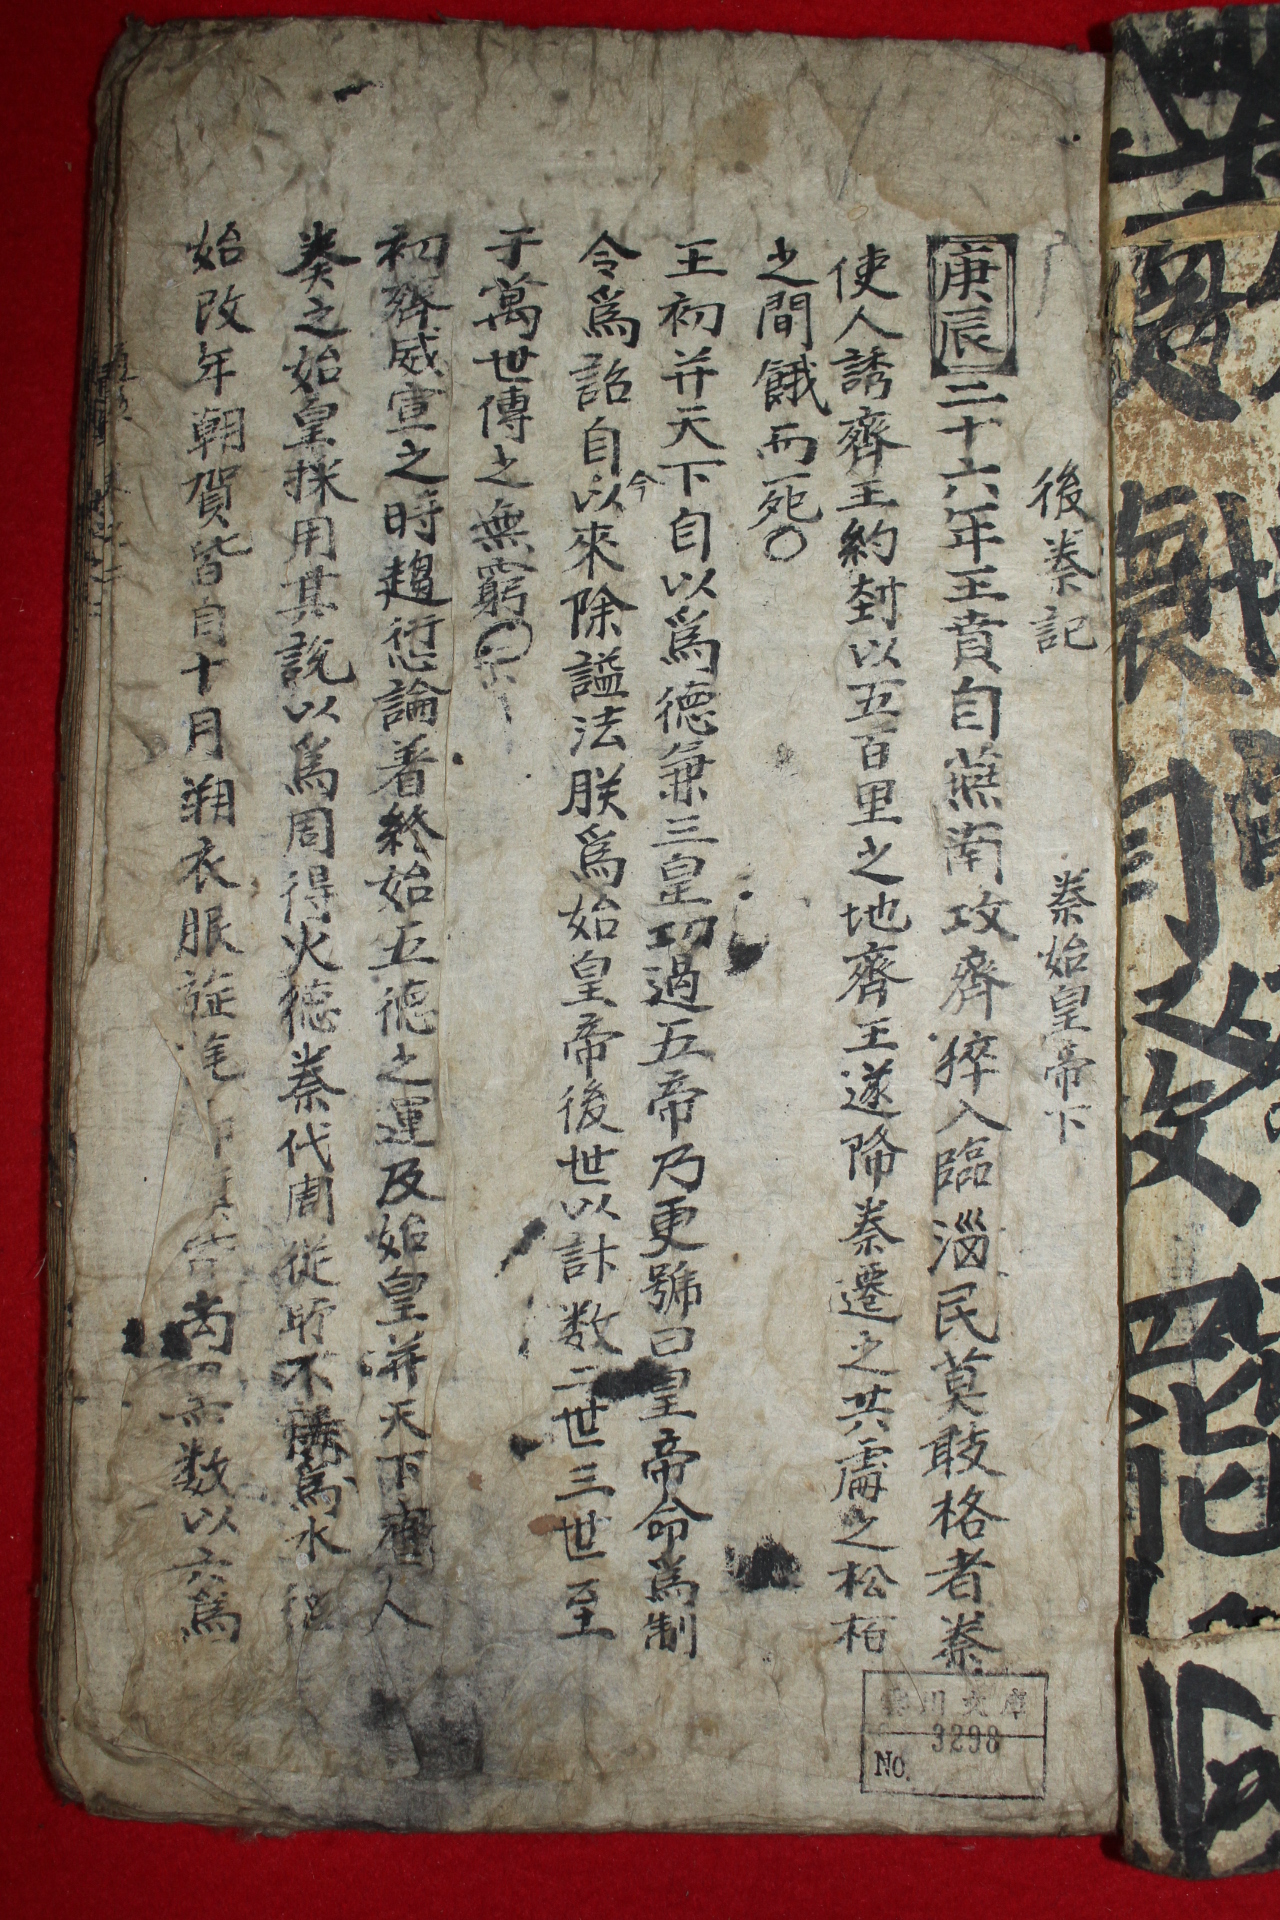 後秦記 秦始皇帝下
庚辰二十六年王賁自燕南攻齊猝入臨淄民莫敢格者秦
使人誘齊王約封以五百里之地齊王遂降秦遷之共處之松栢
之間餓而死○
王初并天下自以爲德兼三皇功過五帝乃更號曰皇帝命爲制
令爲詔自以今來除謚法朕爲始皇帝後世以計数二世三世至
于萬世傳之無窮○
初齊威宣之時趨衍論著終始五德之運及始皇并天下齊人
奏之始皇採用其說以爲周得火德秦代周從所不勝爲水德
始改年朝賀皆自十月朔衣服旌旄皆尚黑数以六爲
川文庫
No. 3298